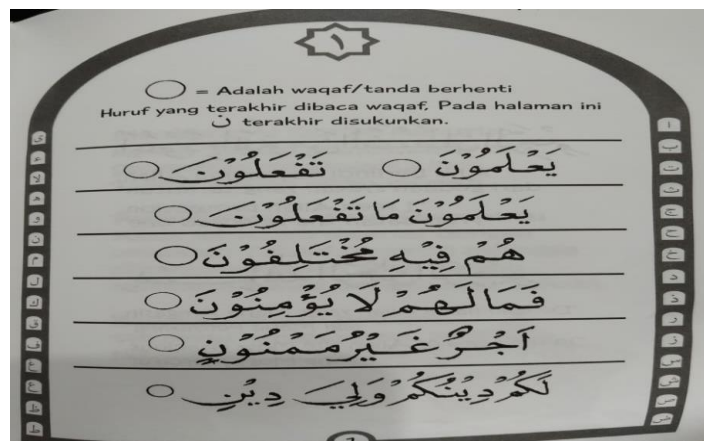 ١
◯ = Adalah waqaf/tanda berhenti
Huruf yang terakhir dibaca waqaf, Pada halaman ini
ن terakhir disukunkan.
يَعْلَمُوْنَ ◯ تَفْعَلُوْنَ ◯
يَعْلَمُوْنَ مَا تَفْعَلُوْنَ ◯
هُمْ فِيْهِ مُخْتَلِفُوْنَ ◯
فَمَا لَهُمْ لَا يُؤْمِنُوْنَ ◯
اَجْرٌ غَيْرُ مَمْنُوْنٍ ◯
لَكُمْ دِيْنُكُمْ وَلِيَ دِيْنِ ◯